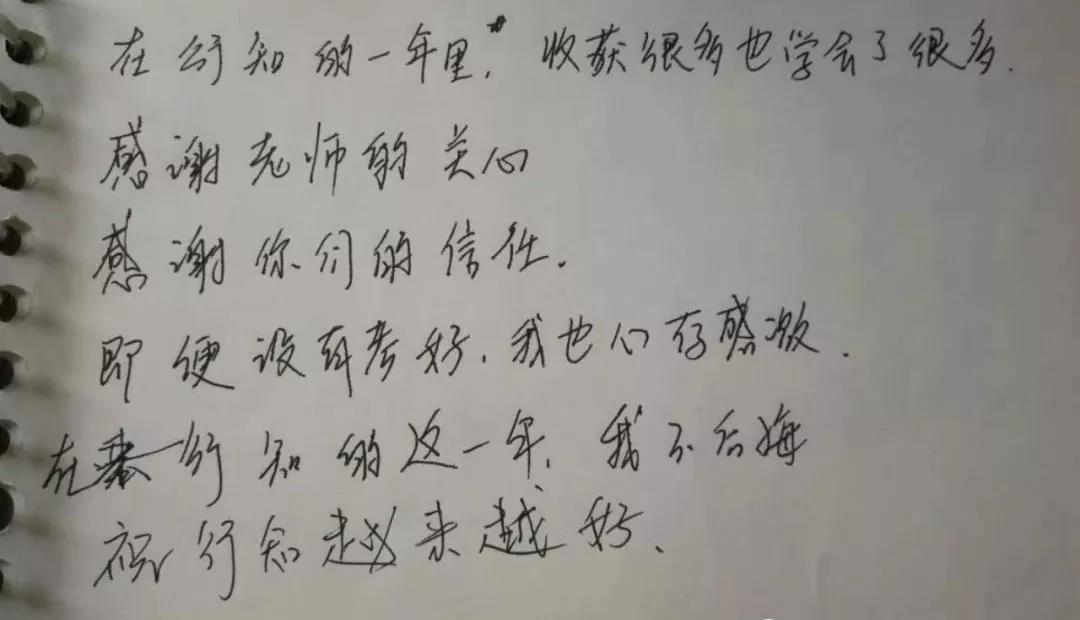 在行知的一年里，收获很多也学会了很多.
感谢老师的关心
感谢你们的信任.
即便没有考好.我也心存感激.
在行知的这一年、我不后悔
祝行知越来越好、